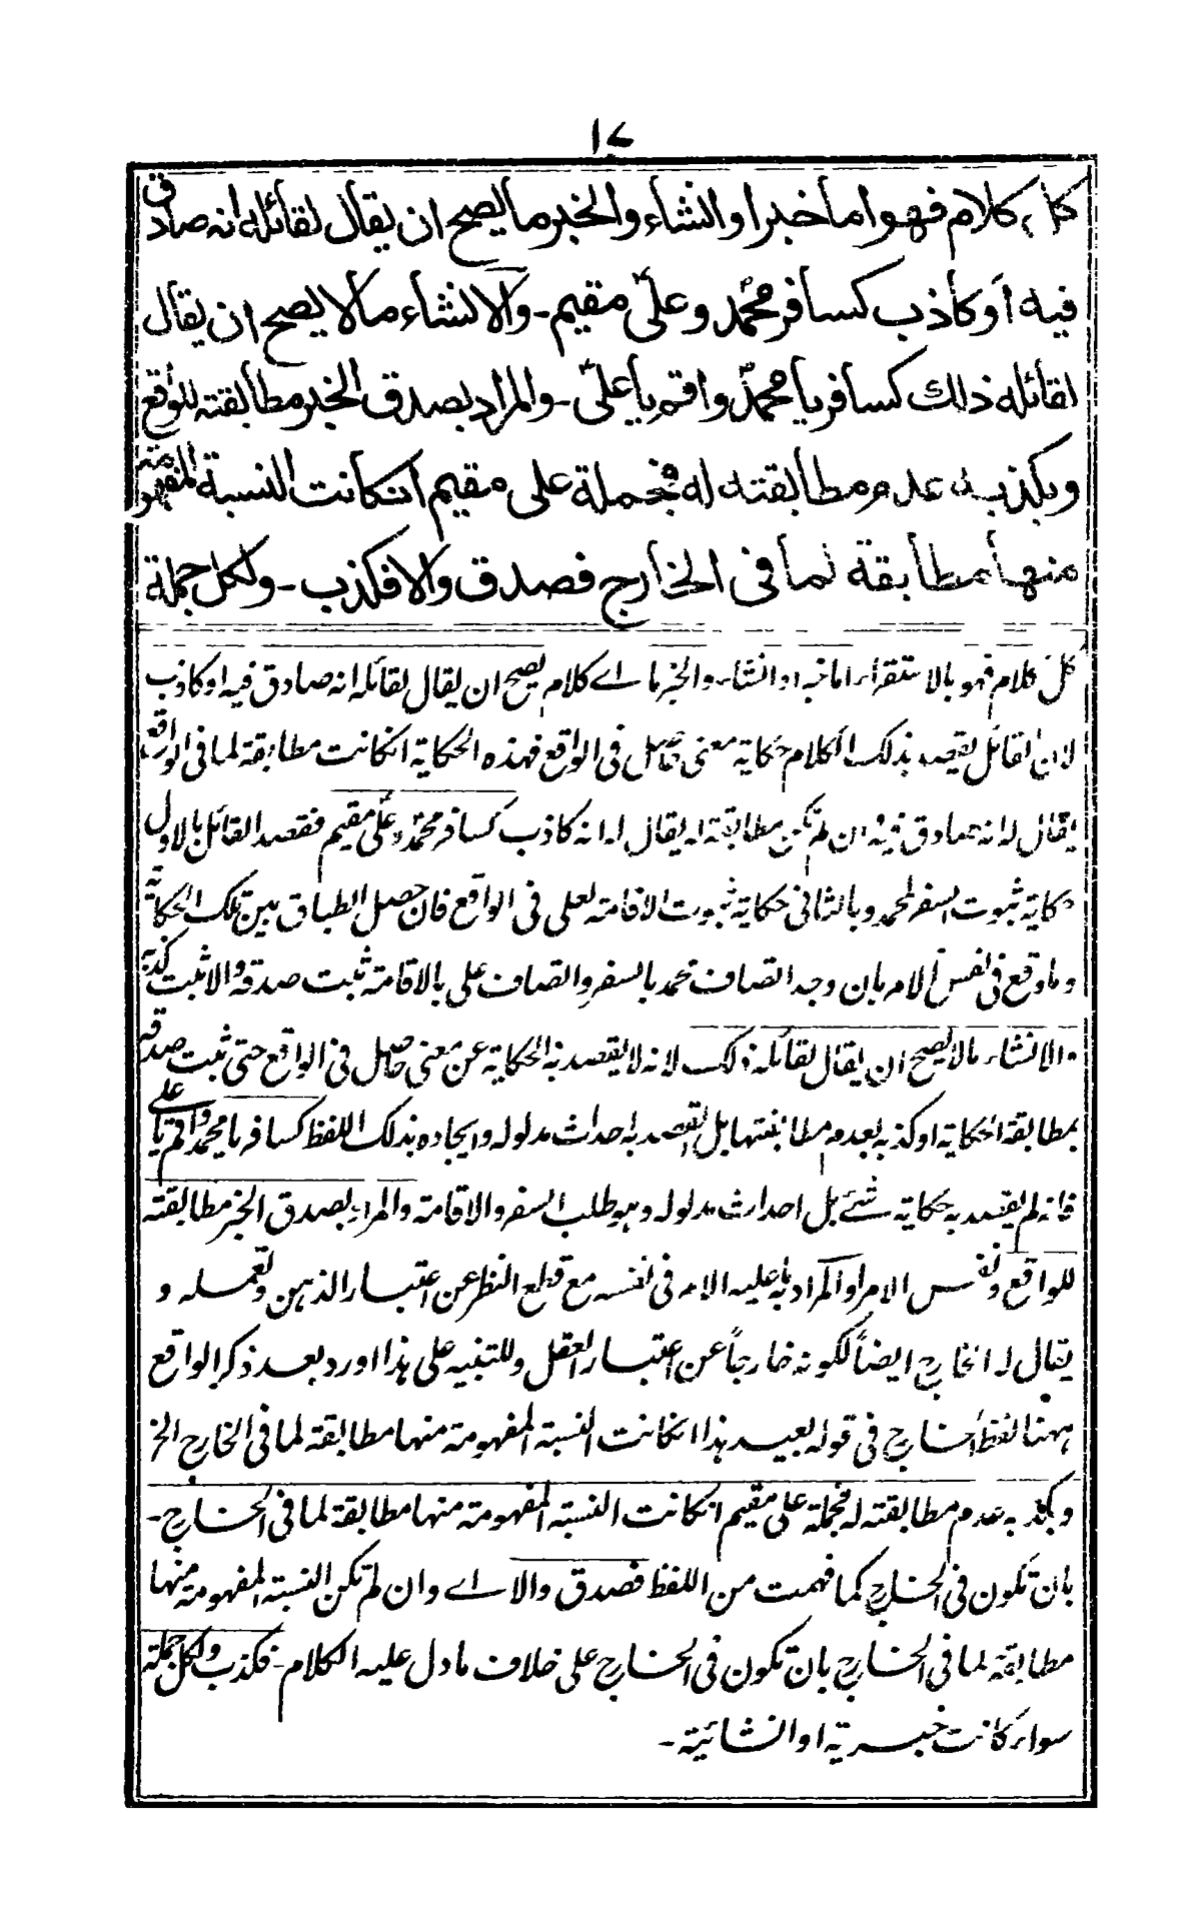 ١٧
كل كلام فهو اما خبر او انشاء والخبر ما يصح ان يقال لقائله انه صادق
فيه او كاذب كسافر محمد وعلي مقيم - والانشاء ما لا يصح ان يقال
لقائله ذلك كسافر يا محمد واقم يا علي - والمراد بصدق الخبر مطابقته للواقع
وبكذبه عدم مطابقته له فجملة علي مقيم انكانت النسبة المفهومة
منها مطابقة لما في الخارج فصدق والا فكذب - ولكل جملة
كل كلام فهو بالاستقراء اما خبر او انشاء والخبر ما اے كلام يصح ان يقال لقائله انه صادق فيه او كاذب
لان القائل يقصد بذلك الكلام حكاية معنى حاصل في الواقع فهذه الحكاية انكانت مطابقة لما في الواقع
يقال له انه صادق فيه وان لم تكن مطابقة له يقال له انه كاذب كسافر محمد وعلي مقيم فقصد القائل بالاول
حكاية ثبوت السفر لمحمد وبالثاني حكاية ثبوت الاقامة لعلي في الواقع فان حصل الطباق بين تلك الحكاية
وما وقع في نفس الامر بان وجد اتصاف محمد بالسفر واتصاف علي بالاقامة ثبت صدقه والا ثبت كذبه
والانشاء ما لا يصح ان يقال لقائله ذلك لانه لا يقصد به الحكاية عن معنى حاصل في الواقع حتى ثبت صدقه
بمطابقة الحكاية او كذبه بعدم مطابقتها بل القصد به احداث مدلوله وايجاده بذلك اللفظ كسافر يا محمد واقم يا علي
فانه لم يقصد به حكاية شئ بل احداث مدلوله وهو طلب السفر والاقامة والمراد بصدق الخبر مطابقته
للواقع ونفس الامر والمراد به ما عليه الامر في نفسه مع قطع النظر عن اعتبار الذهن وتعمله و
يقال له الخارج ايضاً لكونه خارجاً عن اعتبار العقل وللتنبيه على هذا اورد بعد ذكر الواقع
ههنا لفظ الخارج في قوله بعيد هذا انكانت النسبة المفهومة منها مطابقة لما في الخارج الخ
وبكذبه عدم مطابقته له فجملة علي مقيم انكانت النسبة المفهومة منها مطابقة لما في الخارج -
بان تكون في الخارج كما فهمت من اللفظ فصدق والا اے وان لم تكن النسبة المفهومة منها
مطابقة لما في الخارج بان تكون في الخارج على خلاف ما دل عليه الكلام - فكذب ولكل جملة
سواء كانت خبرية او انشائية -